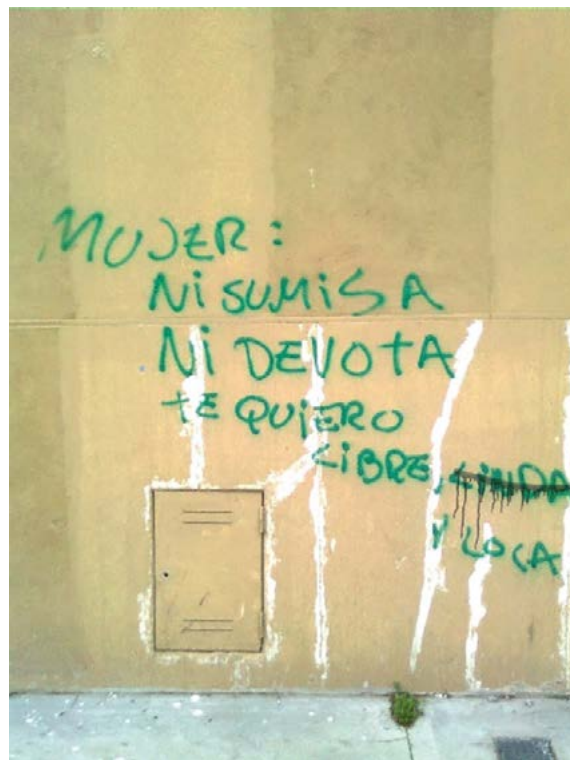 MUJER:
Ni SUMiSA
Ni DEVOTA
tE QUiERO
LiBRE, LiNDA
Y LOCA